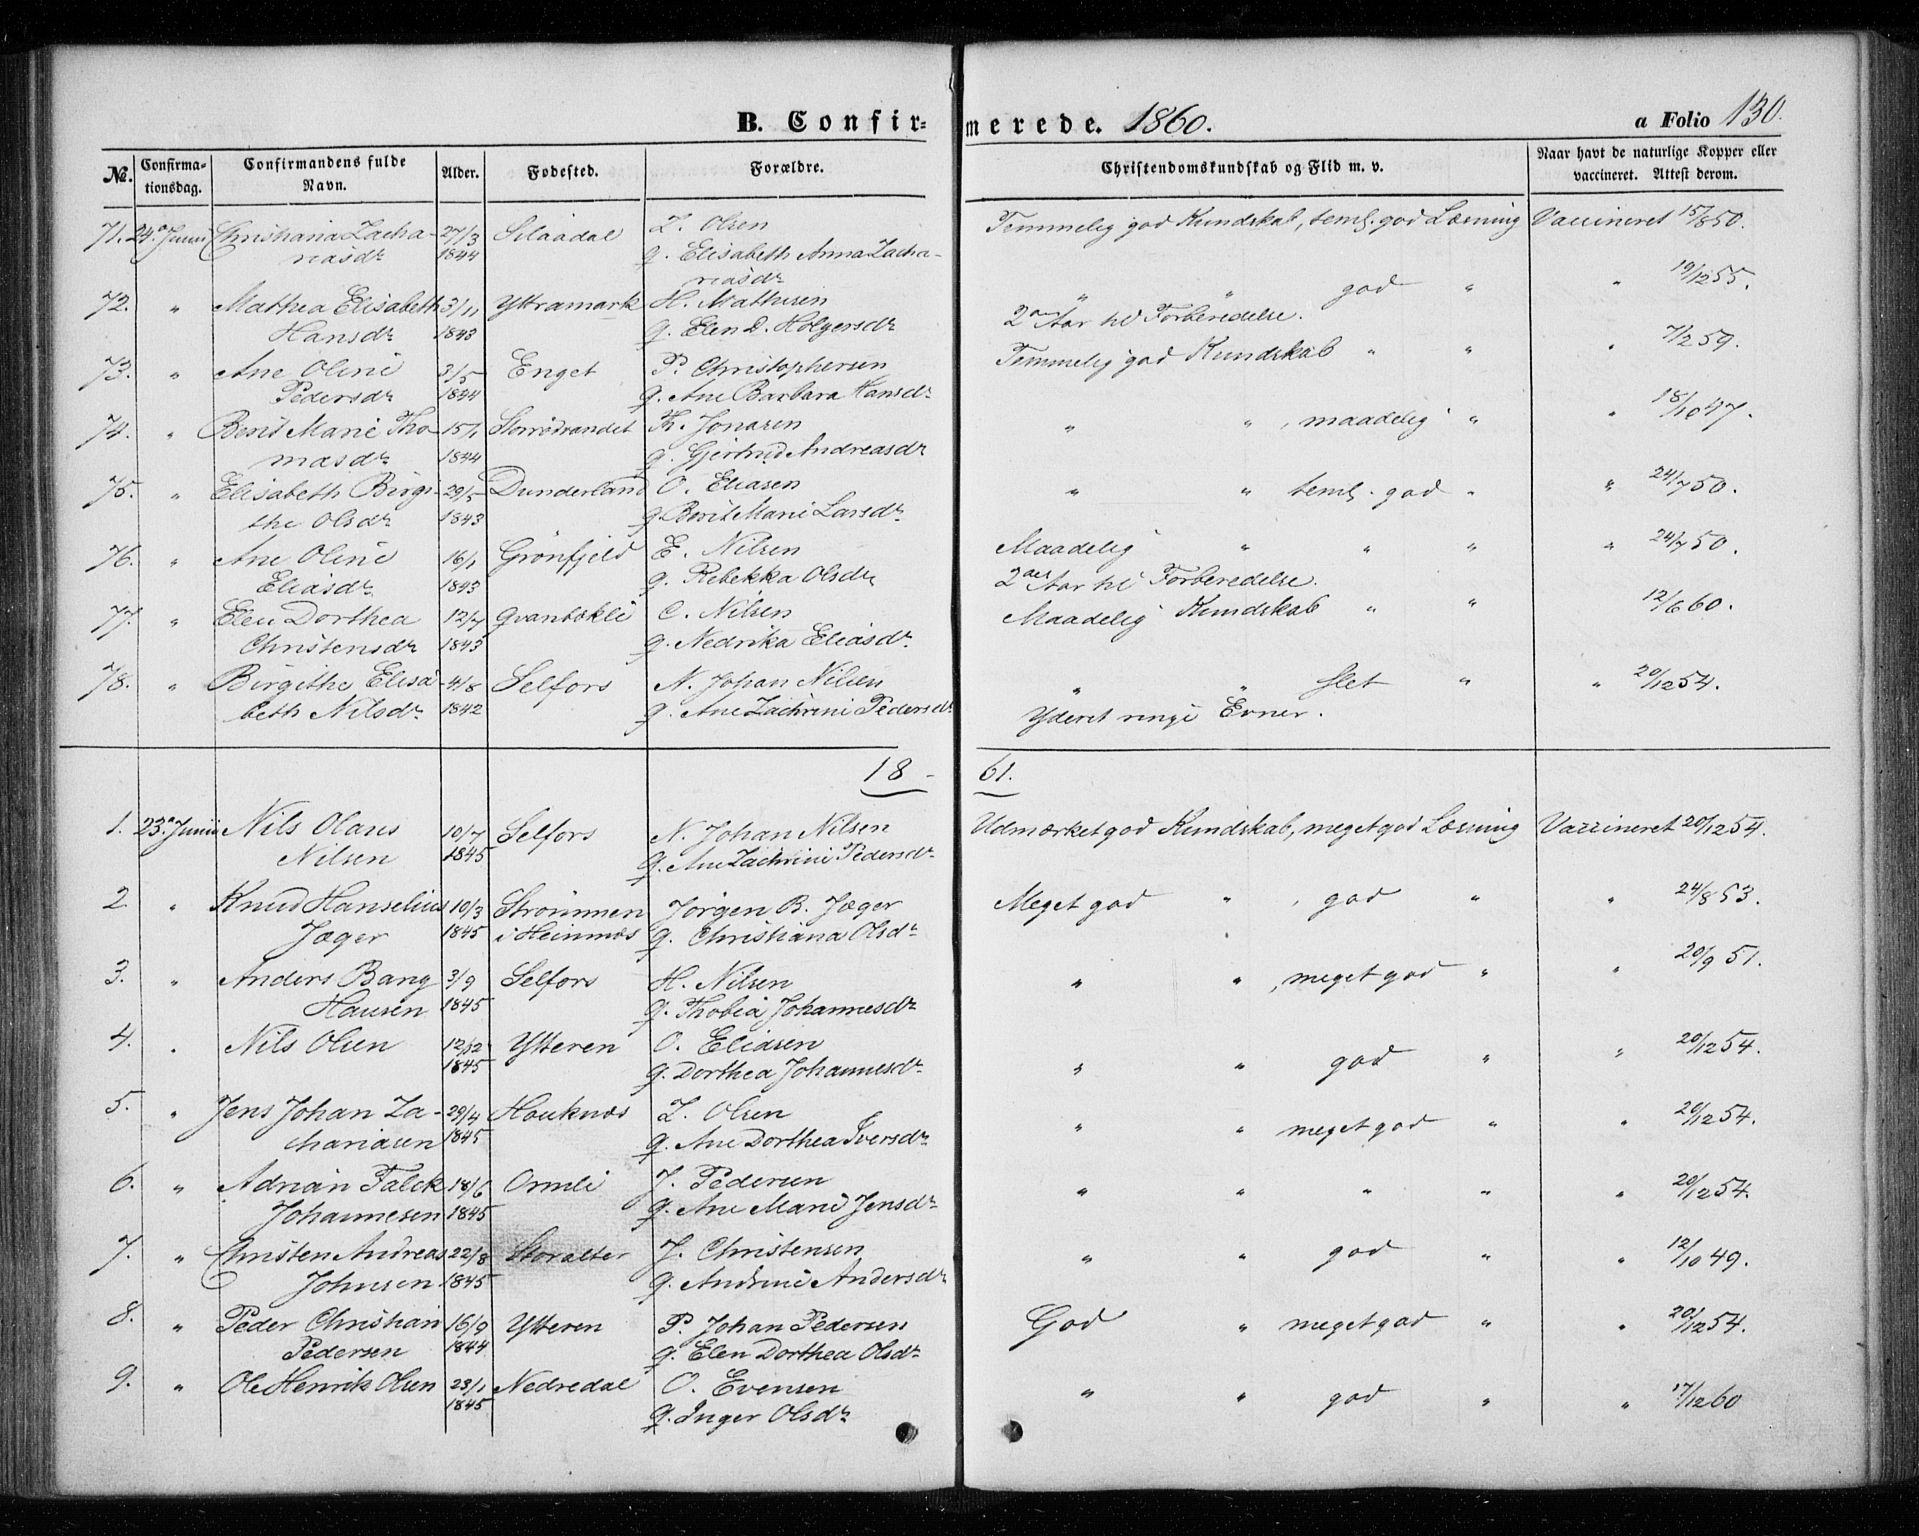 B. Confirmerede. 1860. a Folio 130.
№. Confirmationsdag. Confirmandens fulde Navn. Alder. Fødested. Forældre. Christendomskundskab og Flid m. v. Naar havt de naturlige Kopper eller vaccineret. Attest derom.
71. 24de Junii Christiana Zacha- 27/3 Silaadal Z. Olsen Temmelig god Kundskab, teml. god Læsning Vaccineret 15/8 50.
riasdr 1844 q. Elisabeth Anna Zacha-
riasdr
72. " Mathea Elisabeth 3/11 Yttramark H. Mathisen " " god " " 19/12 55.
Hansdr 1843 q. Elen D. Holgersdr 2 Aar til Forberedelse.
73. " Ane Oline 3/5 Enget P. Christophersen Temmelig god Kundskab " " " 7/2 59.
Pedersdr 1844 q. Ane Barbara Hansdr
74. " Berit Marie Tho- 15/1 Storrødvandet Th. Jonasen " " , maadelig " " 18/10 47.
masdr 1844 q. Gjertrud Andreasdr
75. " Elisabeth Birgi- 29/5 Dunderland O. Eliasen " " teml. god " " 24/7 50.
the Olsdr 1843 q. Berit Marie Larsdr
76. " Ane Oline 16/1 Grønfjeld E. Nilsen Maadelig " " " " 24/7 50.
Eliasdr 1843 q. Rebekka Olsdr 2 Aar til Forberedelse.
77. " Elen Dorthea 12/7 Qvantokli C. Nilsen Maadelig Kundskab " " 12/6 60.
Christensdr 1843 q. Nedrika Eliasdr
78. " Birgithe Elisa- 4/8 Selfors N. Johan Nilsen " " slet " " 20/12 54.
beth Nilsdr 1842 q. Ane Zachrini Pedersdr Yderst ringe Evner.
18 - 61.
1. 23de Junii Nils Olaus 10/7 Selfors N. Johan Nilsen Udmærket god Kundskab, meget god Læsning Vaccineret 20/12 54.
Nilsen 1845 q. Ane Zachrini Pedersdr
2. " Knud Hanselius 10/3 Strømmen Jørgen B. Jæger Meget god " , god " " 24/8 53.
Jæger 1845 i Heinnæs q. Christiana Olsdr
3. " Anders Bang 3/9 Selfors H. Nilsen " " , meget god " " 20/9 51.
Hansen 1845 q. Thobia Johannesdr
4. " Nils Olsen 12/12 Ytteren O. Eliasen " " god " " 20/12 54.
1845 q. Dorthea Johannesdr
5. " Jens Johan Za- 29/4 Hauknæs Z. Olsen " " meget god " " 20/12 54.
chariasen 1845 q. Ane Dorthea Iversdr
6. " Adrian Falck 18/6 Ormli J. Pedersen " " " " " 20/12 54.
Johannesen 1845 q. Ane Marie Jensdr
7. " Christen Andreas 22/8 Storalter J. Christensen " " god " " 12/10 49.
Johnsen 1845 q. Andrini Andersdr
8. " Peder Christian 16/9 Ytteren P. Johan Pedersen God " meget god " " 20/12 54.
Pedersen 1844 q. Elen Dorthea Olsdr
9. " Ole Henrik Olsen 23/1 Nedredal O. Evensen " " god " " 17/12 60
1845 q. Inger Olsdr